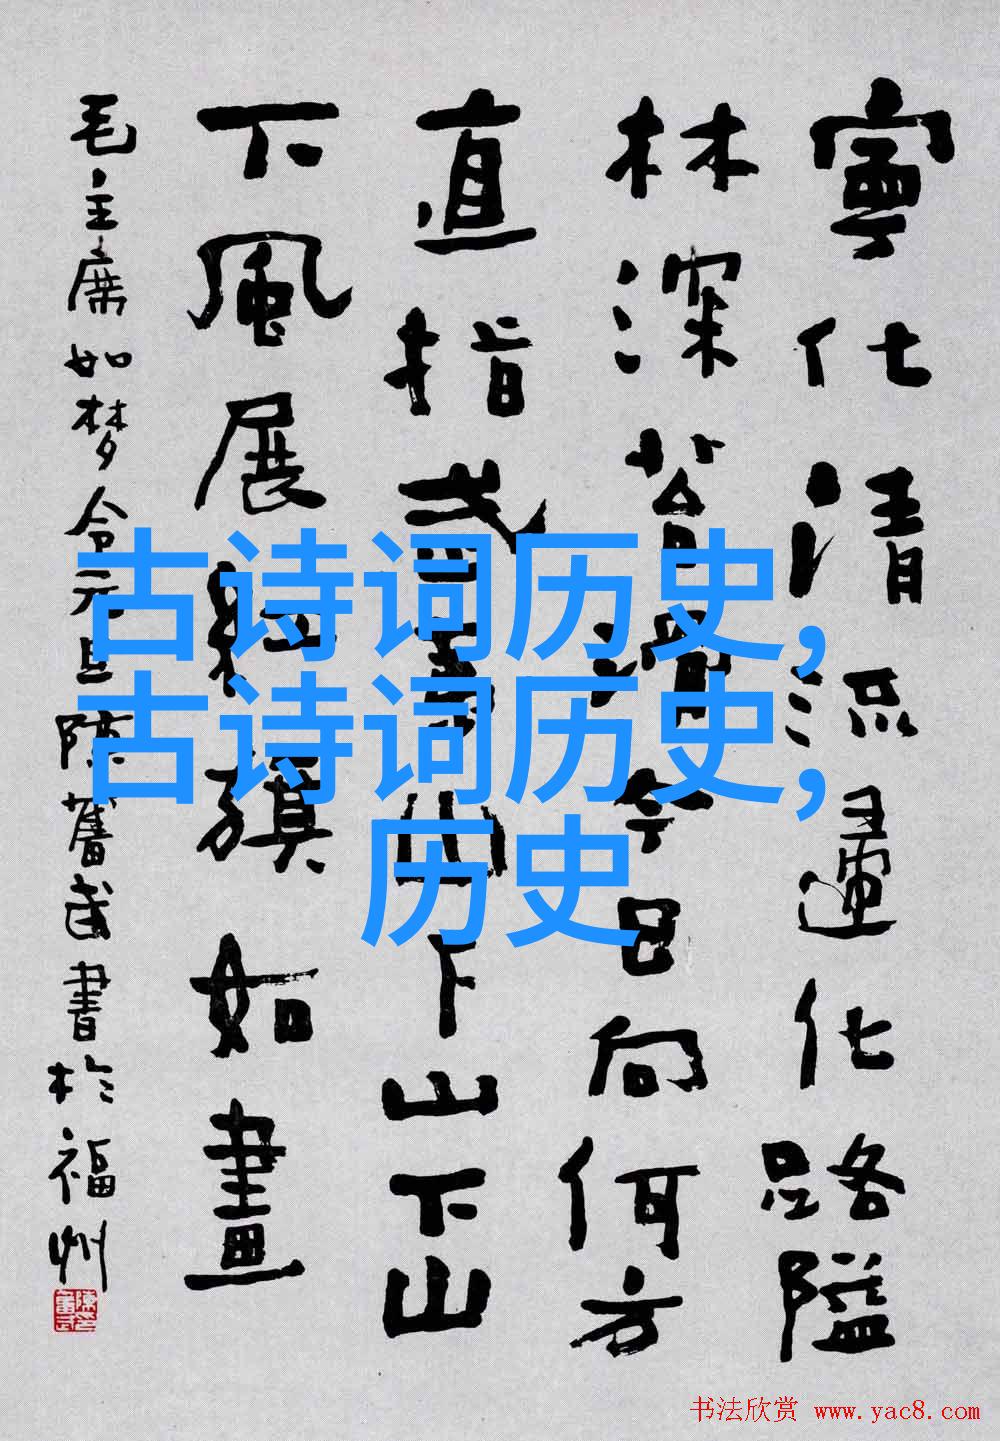 寧化清流歸化路隘
林深苔滑今日向何方
直指武夷山下山下山
下風展紅旗如畫
毛主席如梦令元旦陳奮武書於福州
古诗词历史,
古诗词历史,
历史
书法欣赏 www.yac8.com